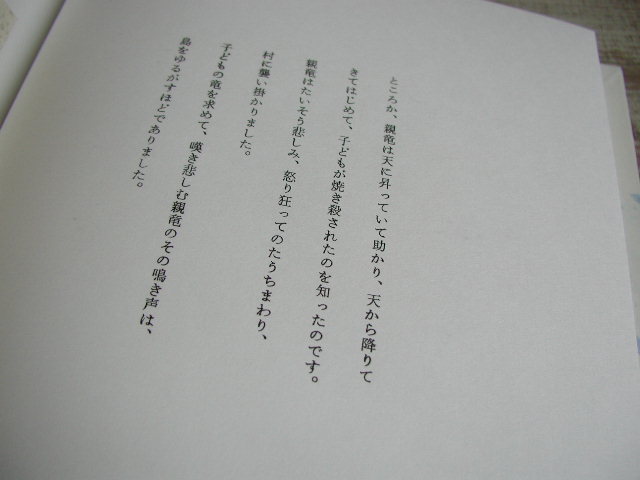 ところが、親竜は天に昇っていて助かり、天から降りて
きてはじめて、子どもが焼き殺されたのを知ったのです。
親竜はたいそう悲しみ、怒り狂ってのたうちまわり、
村に襲い掛かりました。
子どもの竜を求めて、嘆き悲しむ親竜のその鳴き声は、
島をゆるがすほどでありました。